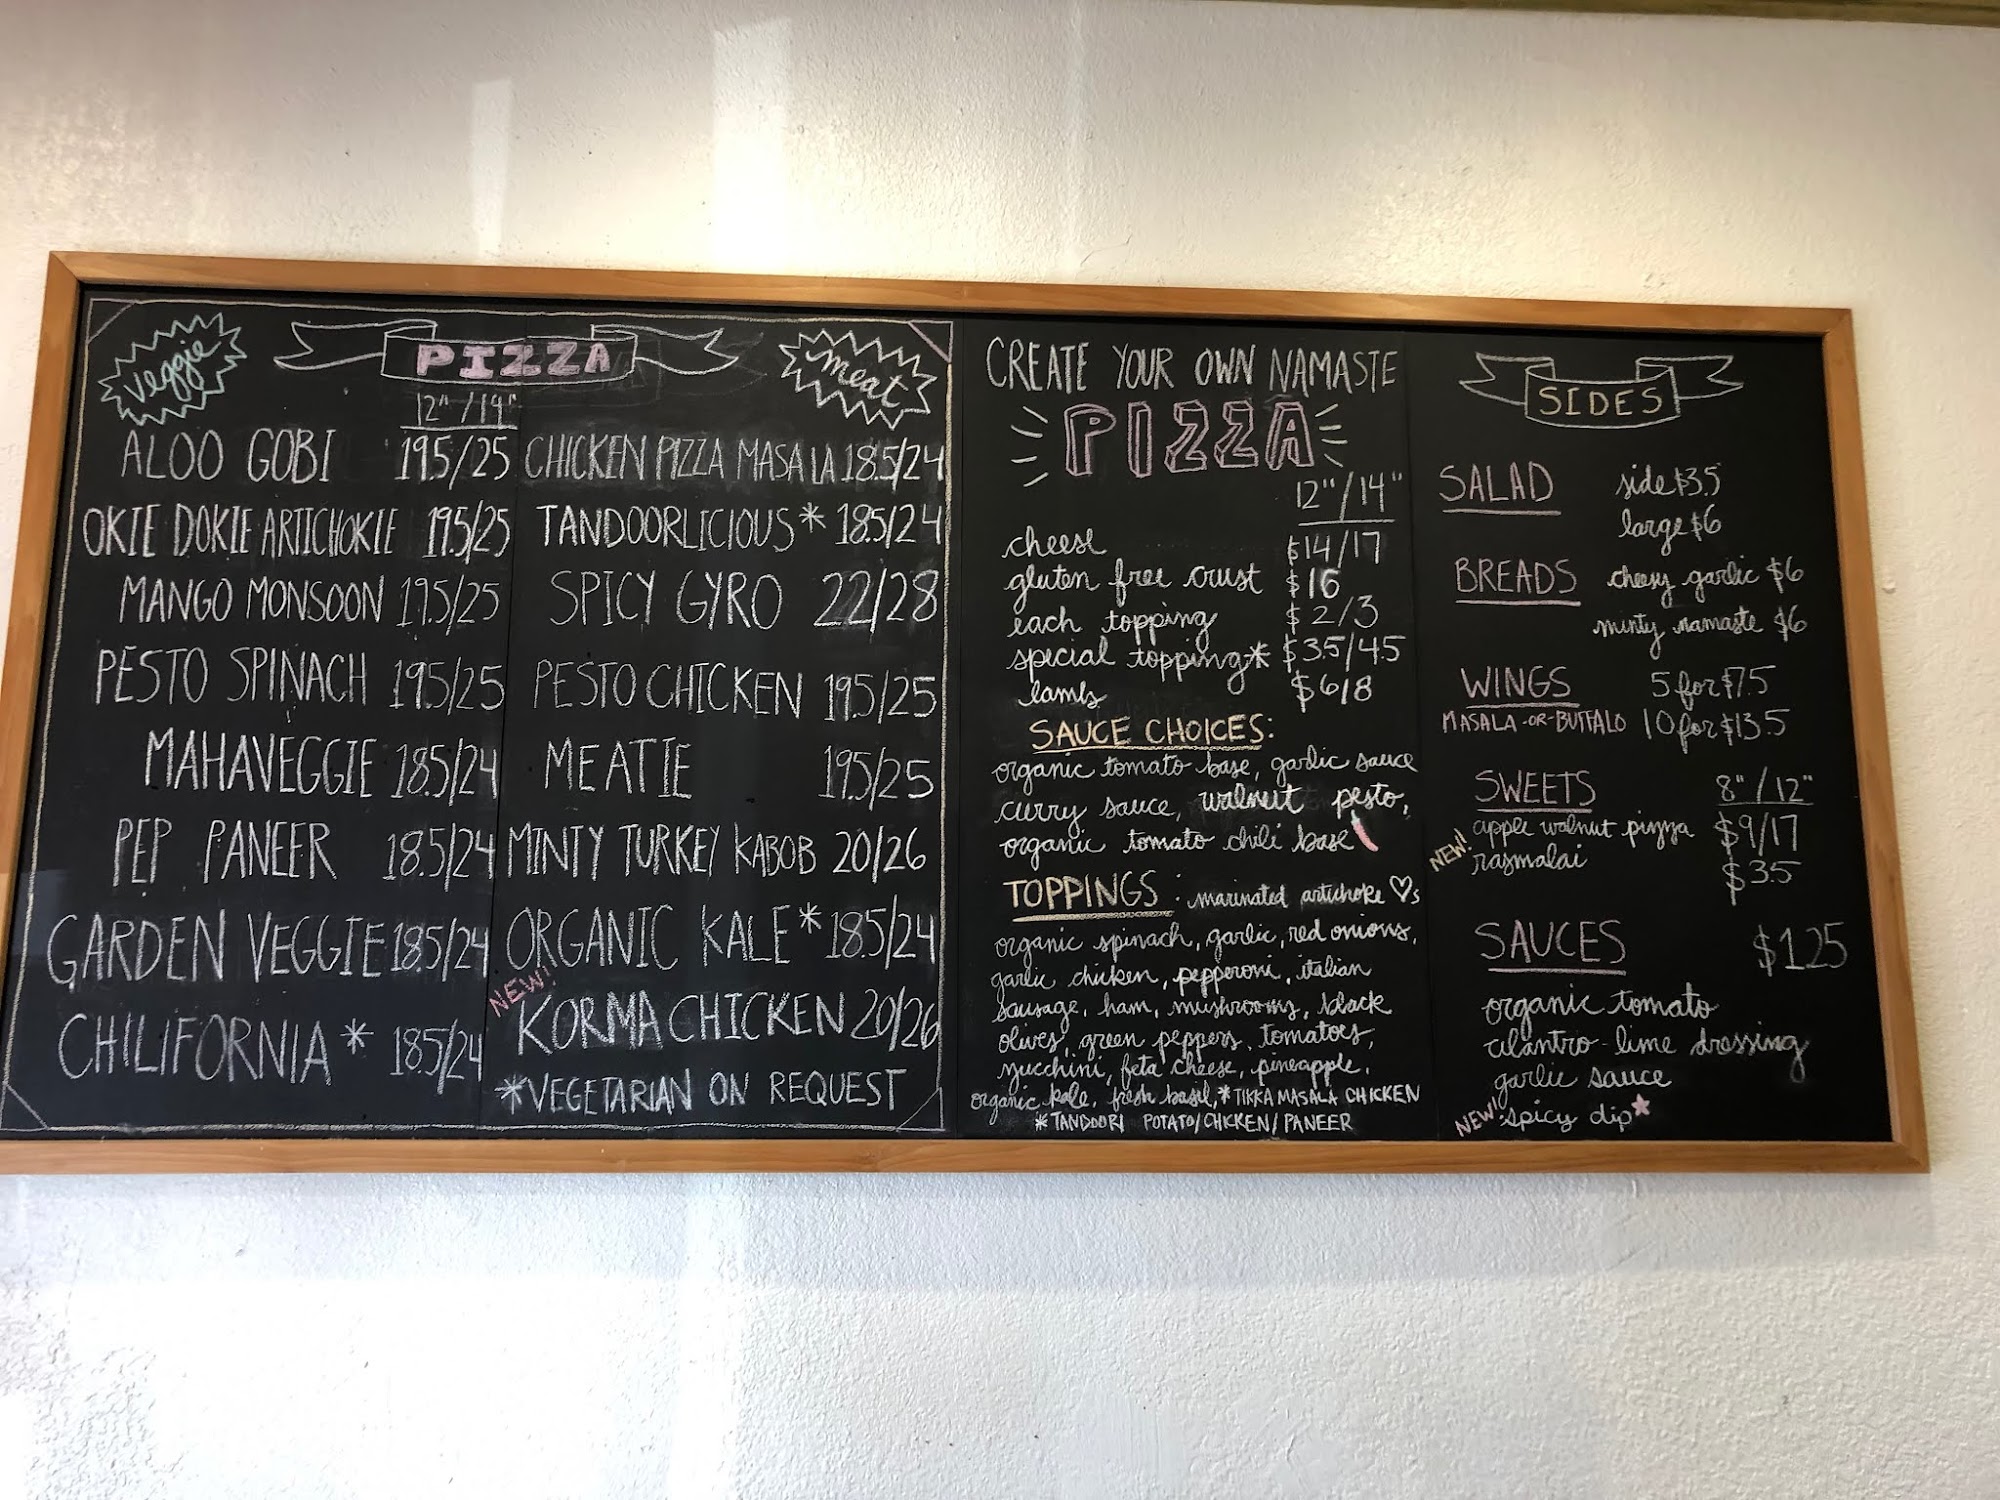 veggie
PIZZA
meat
12" / 14"
ALOO GOBI 19.5/25
OKIE DOKIE ARTICHOKIE 19.5/25
MANGO MONSOON 19.5/25
PESTO SPINACH 19.5/25
MAHAVEGGIE 18.5/24
PEP PANEER 18.5/24
GARDEN VEGGIE 18.5/24
CHILIFORNIA* 18.5/24
CHICKEN PIZZA MASALA 18.5/24
TANDOORLICIOUS* 18.5/24
SPICY GYRO 22/28
PESTO CHICKEN 19.5/25
MEATIE 19.5/25
MINTY TURKEY KABOB 20/26
ORGANIC KALE* 18.5/24
NEW!
KORMA CHICKEN 20/26
*VEGETARIAN ON REQUEST
CREATE YOUR OWN NAMASTE
PIZZA
12" / 14"
cheese $14/17
gluten free crust $16
each topping $2/3
special topping* $3.5/4.5
lamb $6/8
SAUCE CHOICES:
organic tomato base, garlic sauce
curry sauce, walnut pesto,
organic tomato chili base
TOPPINGS: marinated artichoke ♡s
organic spinach, garlic, red onions,
garlic chicken, pepperoni, italian
sausage, ham, mushrooms, black
olives, green peppers, tomatoes,
zucchini, feta cheese, pineapple,
organic kale, fresh basil, *TIKKA MASALA CHICKEN
*TANDOORI POTATO/CHICKEN/PANEER
SIDES
SALAD side $3.5
large $6
BREADS cheesy garlic $6
minty namaste $6
WINGS 5 for $7.5
MASALA -OR- BUFFALO 10 for $13.5
SWEETS 8" / 12"
apple walnut pizza $9/17
NEW! rasmalai $3.5
SAUCES $1.25
organic tomato
cilantro-lime dressing
garlic sauce
NEW! spicy dip